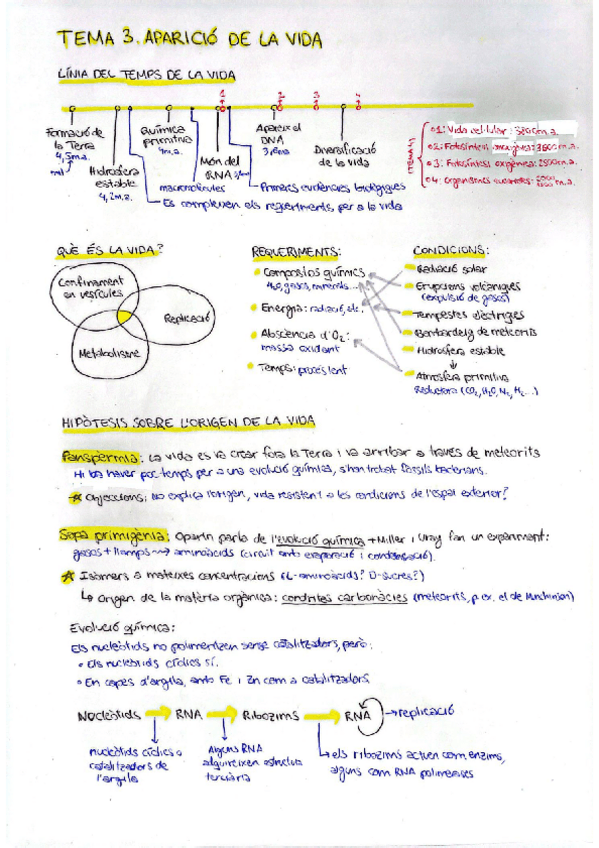 TEMA 3. APARICIÓ DE LA VIDA
LÍNIA DEL TEMPS DE LA VIDA
1 2 3 4
Formació de la Terra
4,5m.a.
Hidrosfera estable
4,2m.a.
Química primitiva
4m.a.
macromolècules
Món del RNA
Apareix el DNA
3,6ma
Diversificació de la vida
Primeres evidències biològiques
Es compleixen els requeriments per a la vida
(TEMA 4)
1: Vida cel·lular: 3800m.a.
2: Fotosíntesi anoxigènica: 3600m.a.
3: Fotosíntesi oxigènica: 2500m.a.
4: Organismes eucariotes: m.a.
QUÈ ÉS LA VIDA?
Confinament en vesícules
Replicació
Metabolisme
REQUERIMENTS:
Compostos químics
H₂O, gasos, minerals...
Energia: radiació, etc.
Absència d'O₂:
massa oxidant
Temps: procés lent
CONDICIONS:
Radiació solar
Erupcions volcàniques
(expulsió de gasos)
Tempestes elèctriques
Bombardeig de meteorits
Hidrosfera estable
Atmosfera primitiva
Reductora (CO₂, H₂O, N₂, H₂...)
HIPÒTESIS SOBRE L'ORIGEN DE LA VIDA
Panspèrmia: La vida es va crear fora la Terra i va arribar a través de meteorits
Hi ba haver poc temps per a una evolució química, s'han trobat fòssils bacterians.
Objeccions: No explica l'origen, vida resistent a les condicions de l'espai exterior?
Sopa primigènia: Oparin parla de l'evolució química + Miller i Urey fan un experiment:
gasos + llamps → aminoàcids (circuit amb evaporació i condensació).
Isòmers a mateixes concentracions (L-aminoàcids? D-sucres?)
↳ Origen de la matèria orgànica: condrites carbonàcies (meteorits, p.ex. el de Murchinson)
Evolució química:
Els nucleòtids no polimeritzen sense catalitzadors, però:
• Els nucleòtids cíclics sí.
• En capes d'argila, amb Fe i Zn com a catalitzadors
Nucleòtids → RNA → Ribozims → RNA → replicació
nucleòtids cíclics o catalitzadors de l'argila
Alguns RNA adquireixen estructura terciària
els ribozims actuen com enzims, alguns com RNA polimerases